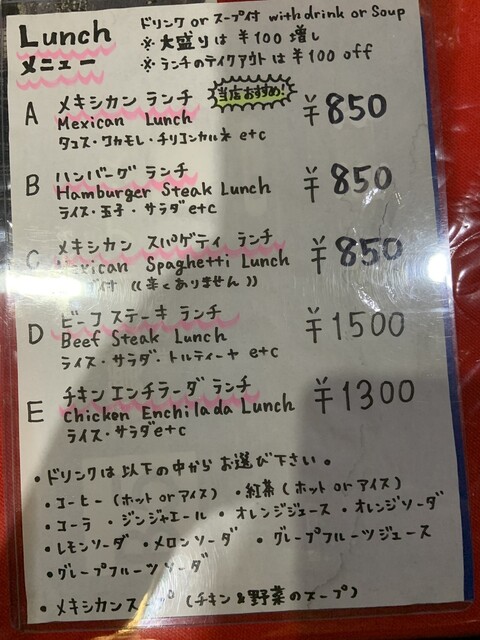 Lunch
メニュー
ドリンク or スープ付 with drink or Soup
※ 大盛りは ¥100 増し
※ ランチのテイクアウトは ¥100 off
A メキシカン ランチ 当店おすすめ! ¥850
Mexican Lunch
タコス・ワカモレ・チリコンカルネ etc
B ハンバーグ ランチ ¥850
Hamburger Steak Lunch
ライス・玉子・サラダ etc
C メキシカン スパゲティ ランチ ¥850
Mexican Spaghetti Lunch
付 ((辛くありません))
D ビーフステーキ ランチ ¥1500
Beef Steak Lunch
ライス・サラダ・トルティーヤ etc
E チキンエンチラーダ ランチ ¥1300
Chicken Enchilada Lunch
ライス・サラダ etc
・ドリンクは以下の中からお選び下さい。
・コーヒー (ホット or アイス) ・紅茶 (ホット or アイス)
・コーラ ・ジンジャエール ・オレンジジュース ・オレンジソーダ
・レモンソーダ ・メロンソーダ ・グレープフルーツジュース
・グレープフルーツソーダ
・メキシカンスープ (チキン&野菜のスープ)